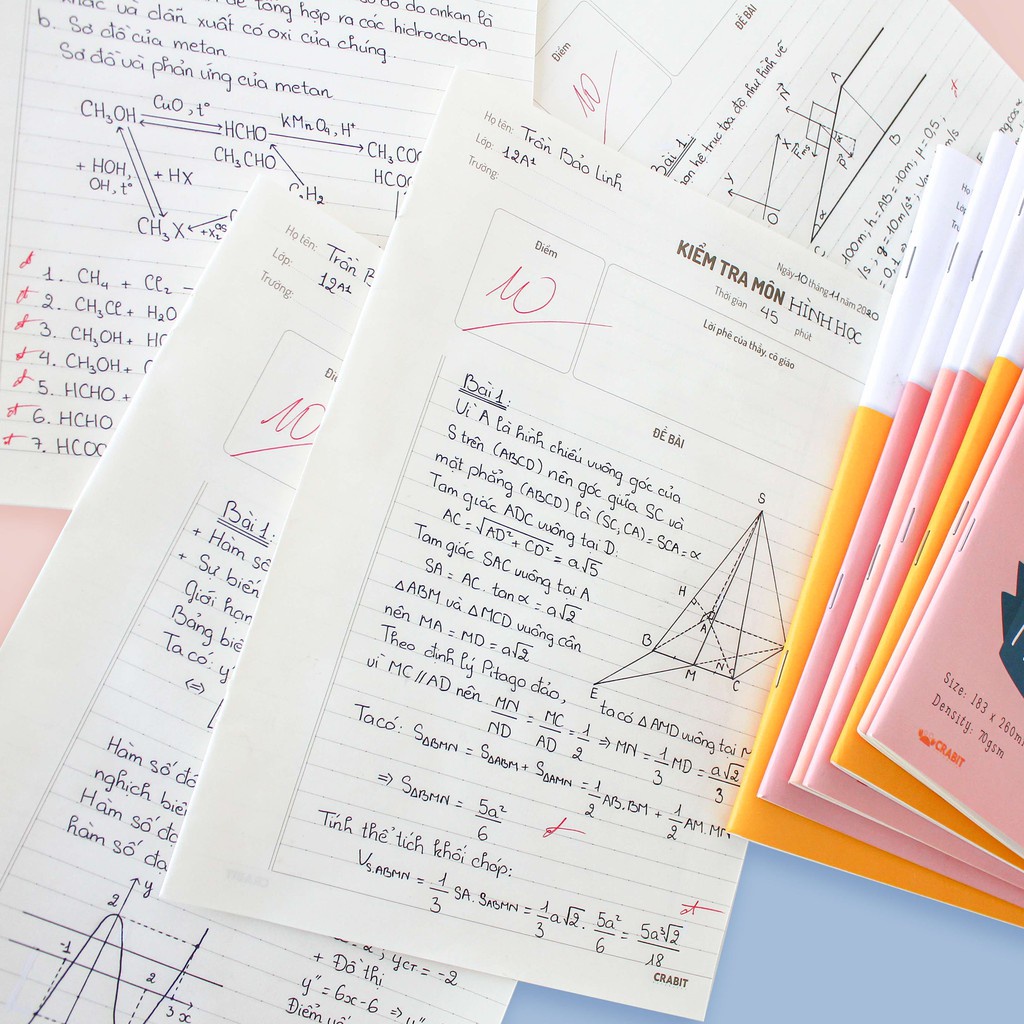 và dẫn xuất có oxi của chúng.
b. Sơ đồ của metan
Sơ đồ và phản ứng của metan
CH₃OH
CuO, t°
HCHO
KMnO₄, H⁺
CH₃CHO
+ HOH,
OH, t°
+ HX
CH₃X
1. CH₄ + Cl₂
2. CH₃Cl + H₂O
3. CH₃OH +
4. CH₃OH +
5. HCHO +
6. HCHO
7.
Điểm
10
ĐỀ BÀI
Bài 1:
hệ trục toạ độ như hình vẽ
N
A
B
y
x
O
α
100m; h = AB = 10m; μ = 0,5,
g = 10m/s²;
Họ tên: Trần
Lớp: 12A1
Trường:
10
Bài 1:
+ Hàm số
+ Sự biến
Giới hạn
Bảng
Ta có: y'
⇔
Hàm số
nghịch biến
Hàm số
hàm số
y
2
-1
2
3 x
yCT = -2
+ Đồ thị
y'' = 6x-6 ⇒ y''
Điểm
Họ tên: Trần Bảo Linh
Lớp: 12A1
Trường:
Ngày 10 tháng 11 năm 2020
KIỂM TRA MÔN HÌNH HỌC
Thời gian 45 phút
Điểm
10
Lời phê của thầy, cô giáo
ĐỀ BÀI
Bài 1:
Vì A là hình chiếu vuông góc của
S trên (ABCD) nên góc giữa SC và
mặt phẳng (ABCD) là (SC, CA) = SCA = α
Tam giác ADC vuông tại D:
AC = √AD² + CD² = a√5
Tam giác SAC vuông tại A
SA = AC. tan α = a√2
△ABM và △MCD vuông cân
nên MA = MD = a√2
Theo định lý Pitago đảo, ta có △AMD vuông tại M
vì MC // AD nên MN/ND = MC/AD = 1/2 ⇒ MN = 1/3 MD = a√2/3
Ta có: S△BMN = S△ABM + S△AMN = 1/2 AB.BM + 1/2 AM.MN
⇒ S△BMN = 5a²/6
Tính thể tích khối chóp:
VS.ABMN = 1/3 SA. SABMN = 1/3 a√2. 5a²/6 = 5a³√2/18
S
H
A
B
M
N
C
E
CRABIT
Size: 183 x 260mm
Density: 70gsm
CRABIT